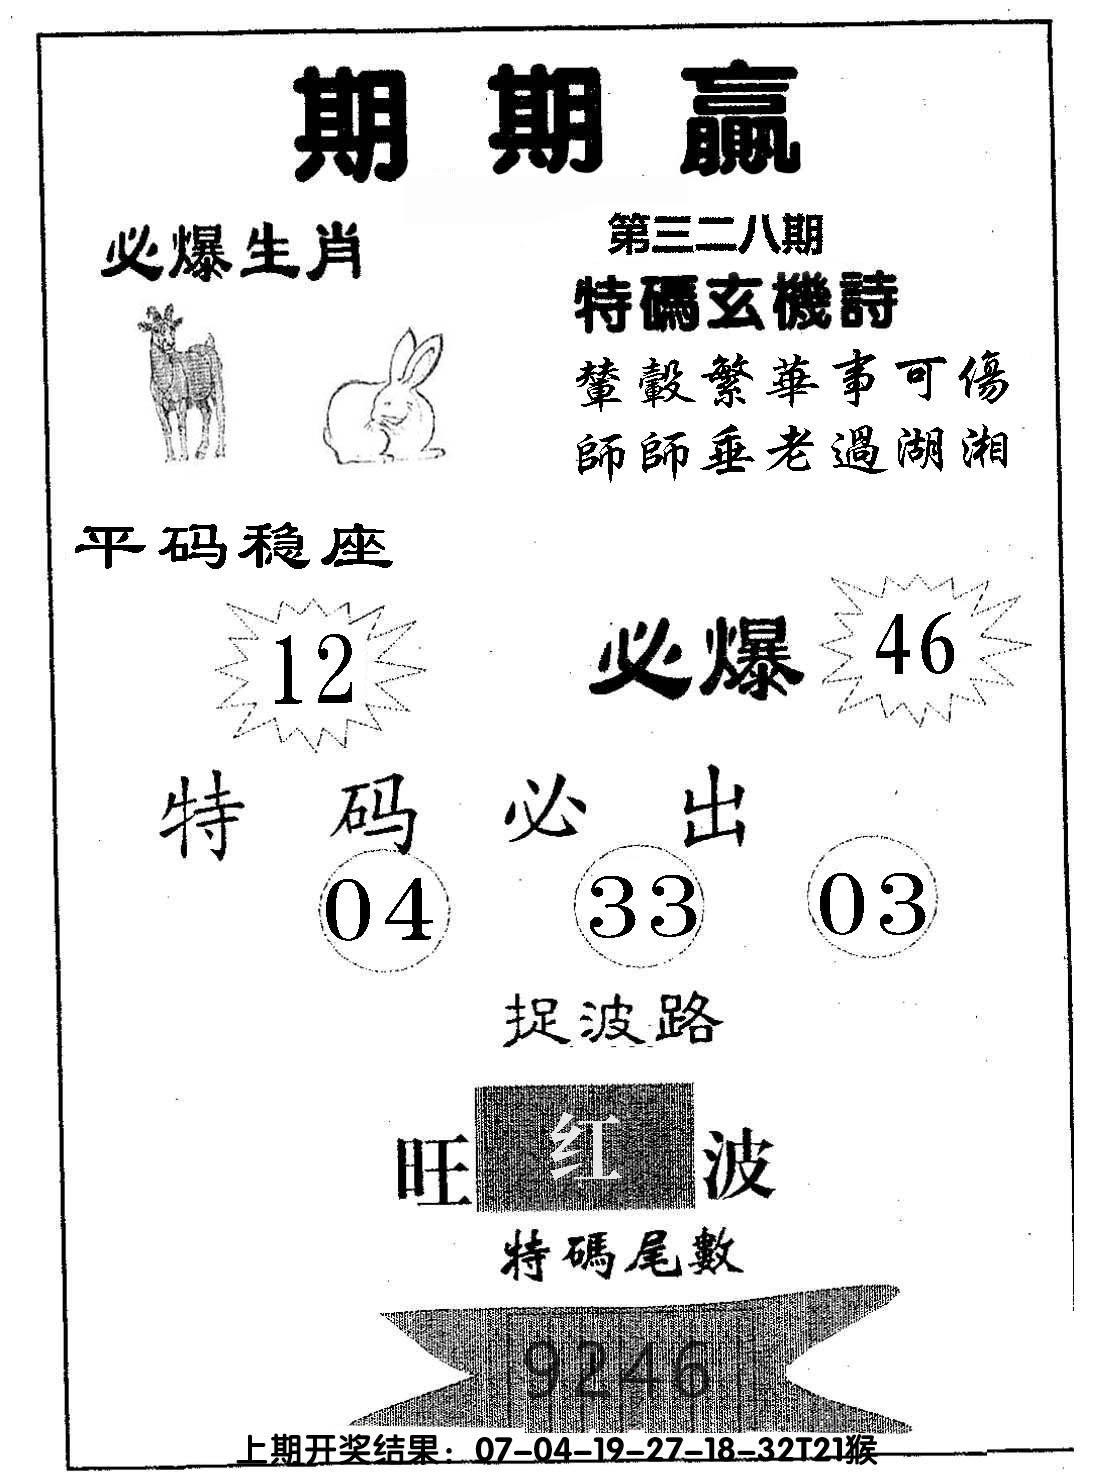 期期赢
必爆生肖
第三二八期
特碼玄機詩
輦轂繁華事可傷
師師垂老過湖湘
平码稳座
12
必爆 46
特码必出
04 33 03
捉波路
旺红波
特碼尾數
9246
上期开奖结果：07-04-19-27-18-32T21猴